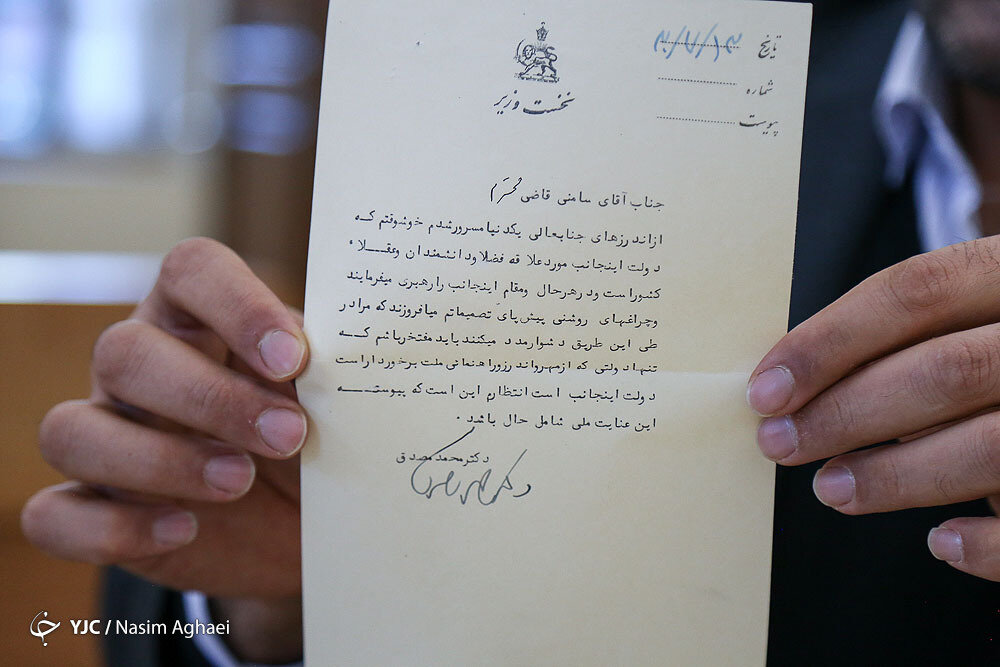 تاریخ ۳۰/۷/۱۳
شماره
پیوست
نخست وزیر
جناب آقای سامنی قاضی محترم
ازاندرزهای جنابعالی یکدنیامسرورشدم خوشوقتم که
دولت اینجانب موردعلاقه فضلاودانشمندان وعقلاء
کشوراست ودرهرحال ومقام اینجانب رارهبری میفرمایند
وچراغهای روشنی پیش‌پای تصمیماتم میافروزندکه مرادر
طی این طریق دشوارمدد میکنندباید مفتخرباشم که
تنهادولتی که ازمهرواندرزوراهنمائی ملت برخورداراست
دولت اینجانب است‌انتظارم این است‌که پیوسته
این عنایت ملی شامل حال باشد.
دکترمحمدمصدق
دکتر محمد مصدق
YJC / Nasim Aghaei